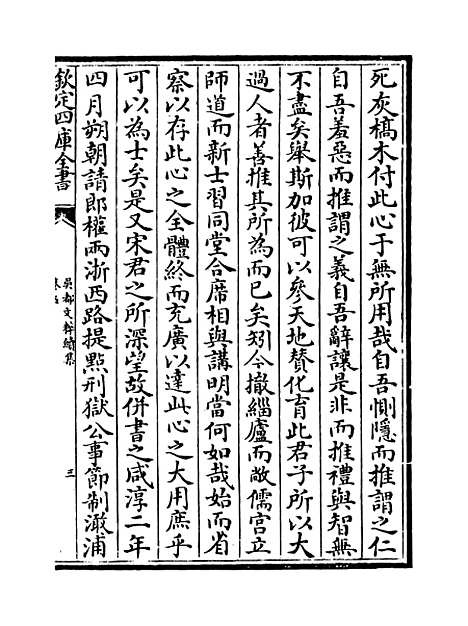 死灰槁木付此心于無所用哉自吾惻隱而推謂之仁
自吾羞惡而推謂之義自吾辭讓是非而推禮與智無
不盡矣舉斯加彼可以參天地賛化育此君子所以大
過人者善推其所為而已矣矧今撤緇廬而敞儒宫立
師道而新士習同堂合席相與講明當何如哉始而省
察以存此心之全體終而充廣以達此心之大用庶乎
可以為士矣是又宋君之所深望故併書之咸淳二年
四月朔朝請郎權兩浙西路提點刑獄公事節制澉浦
欽定四庫全書
吳都文粹續集
三